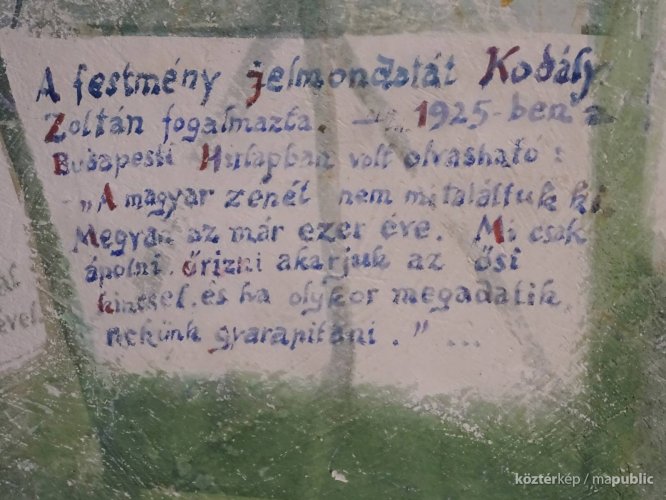 A festmény jelmondatát Kodály
Zoltán fogalmazta. – 1925-ben a
Budapesti Hírlapban volt olvasható :
„A magyar zenét nem mi találtuk ki.
Megvan az már ezer éve. Mi csak
ápolni, őrizni akarjuk az ősi
kincset, és ha olykor megadatik
nekünk gyarapítani." ...
ével
köztérkép / mapublic